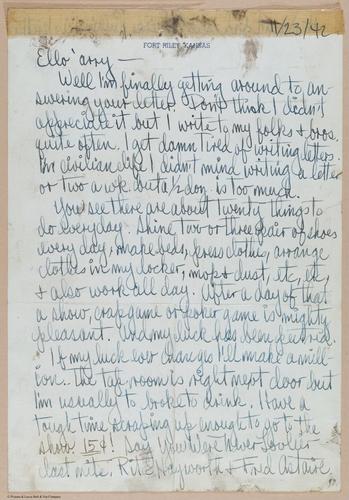 11/23/42
FORT RILEY, KANSAS
Ello 'arry —
Well I'm finally getting around to an-
swering your letter. Don't think I didn't
appreciate it but I write to my folks & bros.
quite often. I get damn tired of writing letters.
In civilian life I didn't mind writing a letter
or two a wk. but a 1/2 doz. is too much.
You see there are about twenty things to
do everyday. Shine two or three pair of shoes
every day, make beds, press clothes, arrange
clothes in my locker, mop & dust, etc, etc,
& also work all day. After a day of that
a show, crap game or poker game is mighty
pleasant. And my luck has been
If my luck ever changes I'll make a mill-
ion. The tap room is right next door but
I'm usually to broke to drink. Have a
tough time scraping up enough to go to the
show. 15¢! Say "You Were Never Lovlier"
last nite. Rita Hayworth & Fred Astaire.